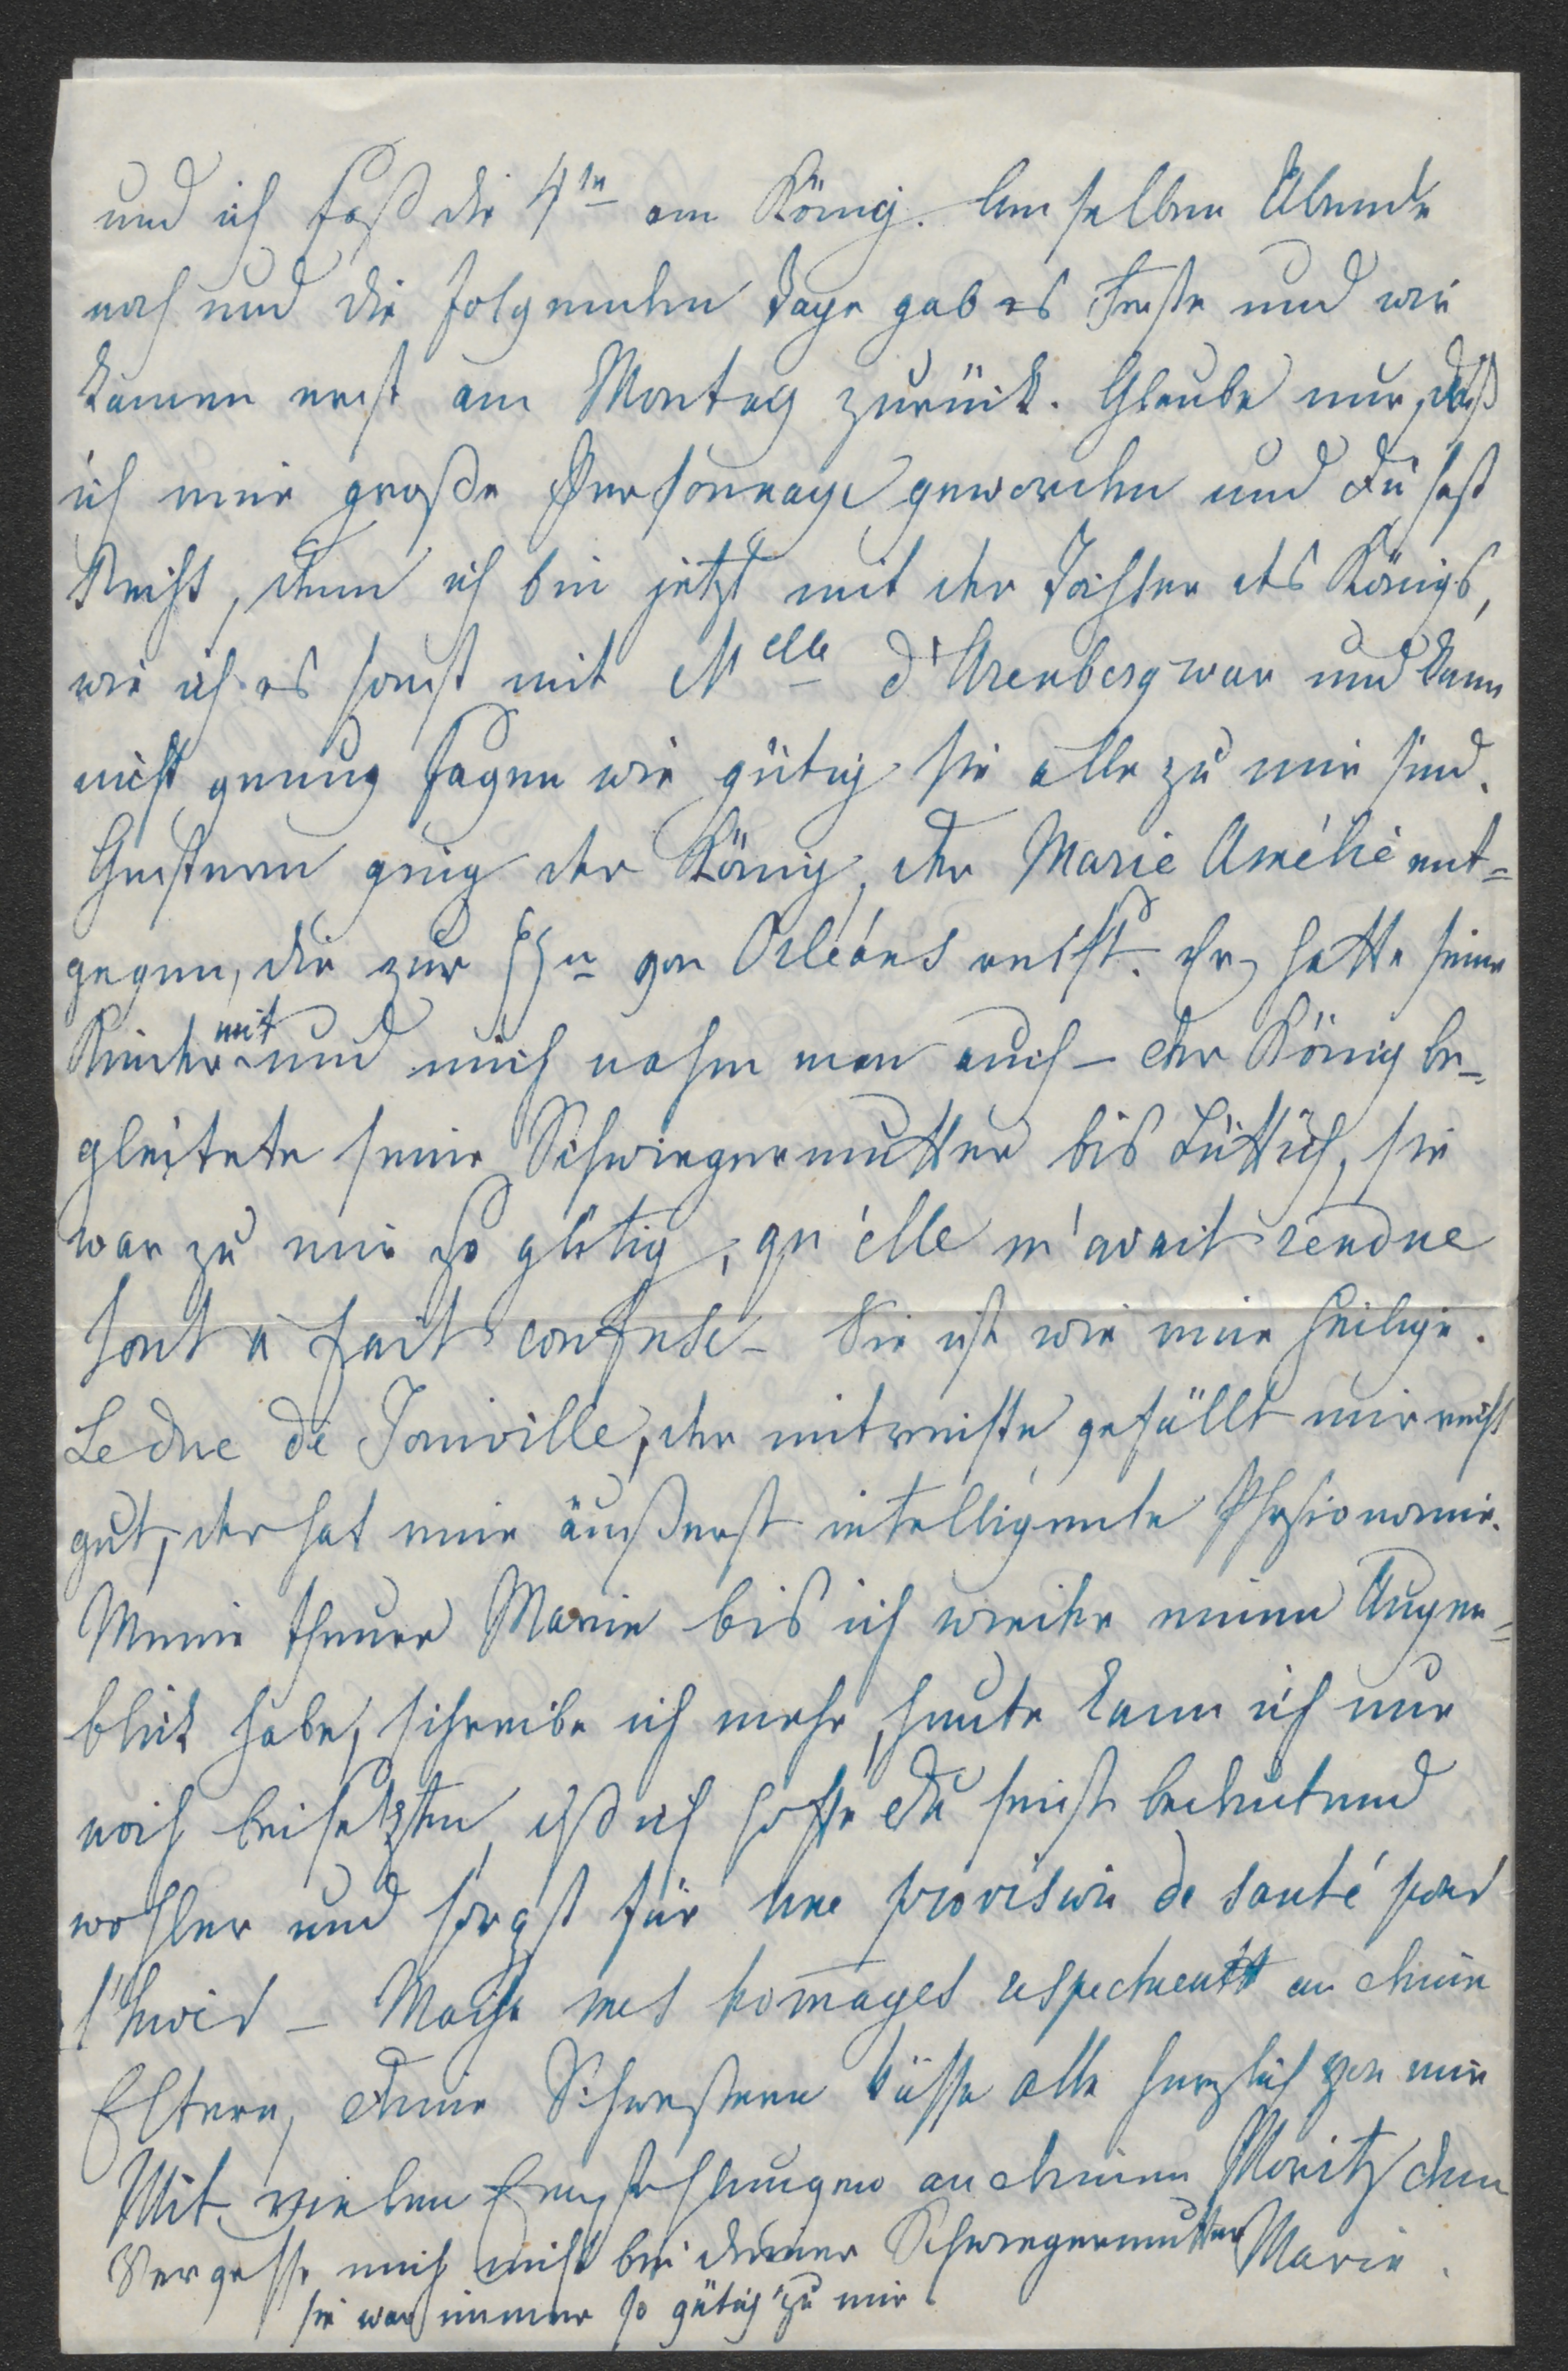 und ich saß die 4te am König. Am selben Abende
noch und die folgenden Tage gab es Feste und wir
kamen erst am Montag zurück. Glaube nur, daß
ich eine große Personnage geworden und du hast
Recht, denn ich bin jetzt mit der Tochter des Königs,
wie ich es sonst mit Melle d'Arenberg war und kann
nicht genug sagen wie gütig sie alle zu mir sind.
Gestern ging der König, der Marie Amélie ent=
gegen, die zur Hgn von Orléans reist. Er hatte seine
Kinder mit und mich nahm man auch – der König be=
gleitete seine Schwiegermutter bis Lüttich, sie
war zu mir so gütig, qu'elle m'avait rendue
tout à fait confuse – Sie ist wie eine Heilige.
Le duc de Joinville, der mitreiste gefällt mir recht
gut, der hat eine äußerst intelligente Physionomie.
Meine theure Marie bis ich wieder einen Augen=
blick habe, schreibe ich mehr, heute kann ich nur
noch beisetzen, daß ich hoffe du seist bedeutend
wohler und sorgst für une provision de santé pour
l'hiver – Mache mes homages respectueux an deine
Eltern, deine Schwestern küsse alle herzlich von mir
Mit vielen Empfehlungen an deinen Moritz deine
Marie.
Vergesse mich nicht bei deiner Schwiegermutter
sie war immer so gütig zu mir.